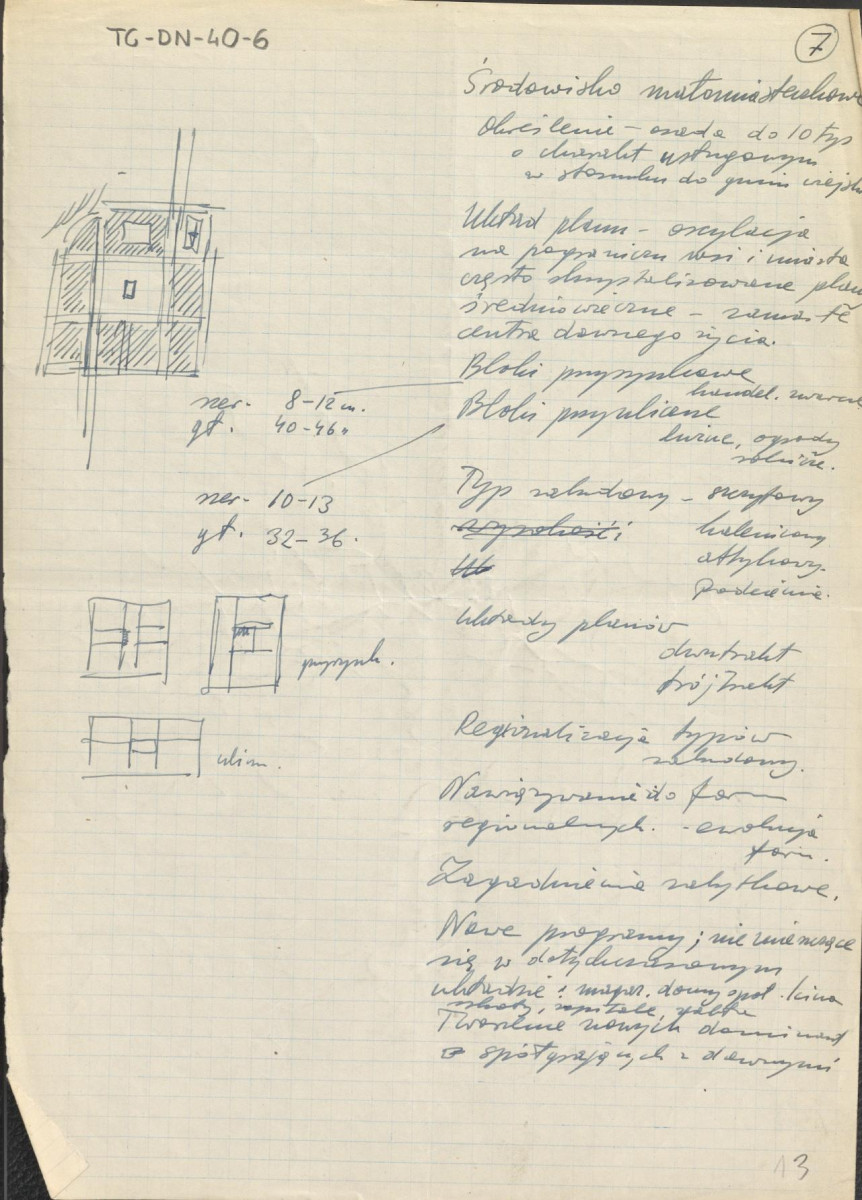 TG-DN-40-6
7
Środowisko małomiasteczkowe
Określenie – osada do 10 tys
o charakt usługowym
w stosunku do gmin wiejsk
Układ planu – oscylacja
na pograniczu wsi i miasta
często skrystalizowane plany
średniowieczne – zamarłe
centra dawnego życia.
Bloki przyrynkowe
handel. zwarte
szer. 8–12 m.
gł. 40–46 "
Bloki przyuliczne
luźne, ogrody
rolnicze.
szer. 10–13
gł. 32–36.
Typ zabudowy – szczytowy
wysokości kalenicowy
attykowy.
Podcienie.
Układy planów
dwutrakt
trójtrakt
przyrynk.
ulicz.
Regionalizacja typów
zabudowy.
Nawiązywanie do form
regionalnych. – ewolucja
form.
Zagadnienia zabytkowe.
Nowe programy; nie mieszczące
się w dotychczasowym
układzie: magaz. domy społ. kina
szkoły, szpitale,
Tworzenie nowych dominant
współgrających z dawnymi
13